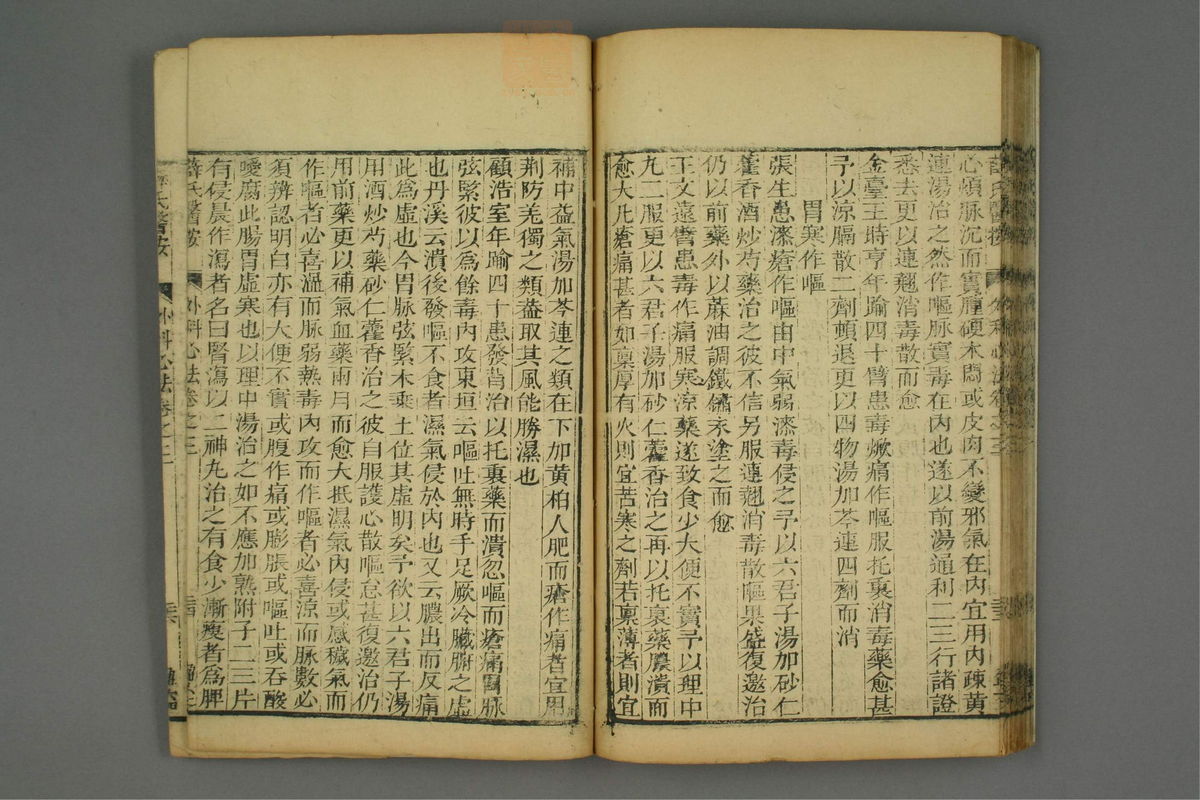 心煩脉沉而實腫硬木悶或皮肉不變邪氣在内宜用内疎黄
連湯治之然作嘔脉實毒在内也遂以前湯通利二三行諸證
悉去更以連翹消毒散而愈
金臺王時亨年踰四十臂患毒焮痛作嘔服托裏消毒藥愈甚
予以涼膈散二劑頓退更以四物湯加芩連四劑而消
胃寒作嘔
張生患漆瘡作嘔由中氣弱漆毒侵之予以六君子湯加砂仁
藿香酒炒芍藥治之彼不信另服連翹消毒散嘔果盛復邀治
仍以前藥外以蔴油調鐵鏽末塗之而愈
王文遠臀患毒作痛服寒涼藥遂致食少大便不實予以理中
九二服更以六君子湯加砂仁藿香治之再以托裏藥膿潰而
愈大凡瘡痛甚者如稟厚有火則宜苦寒之劑若稟薄者則宜
補中益氣湯加芩連之類在下加黄柏人肥而瘡作痛者宜用
荆防羌獨之類葢取其風能勝濕也
顧浩室年踰四十患發背治以托裏藥而潰忽嘔而瘡痛胃脉
弦緊彼以爲餘毒内攻東垣云嘔吐無時手足厥冷臟腑之虚
也丹溪云潰後發嘔不食者濕氣侵於内也又云膿出而反痛
此爲虚也今胃脉弦緊木乘土位其虚明矣予欲以六君子湯
用酒炒芍藥砂仁藿香治之彼自服護心散嘔怠甚復邀治仍
用前藥更以補氣血藥兩月而愈大抵濕氣内侵或感穢氣而
作嘔者必喜温而脉弱熱毒内攻而作嘔者必喜涼而脉數必
須辨認明白亦有大便不實或腹作痛或膨脹或嘔吐或吞酸
噯腐此腸胃虚寒也以理中湯治之如不應加熟附子二三片
有侵晨作瀉者名曰腎瀉以二神丸治之有食少漸瘦者爲脾
薛氏醫按 外科心法卷之三